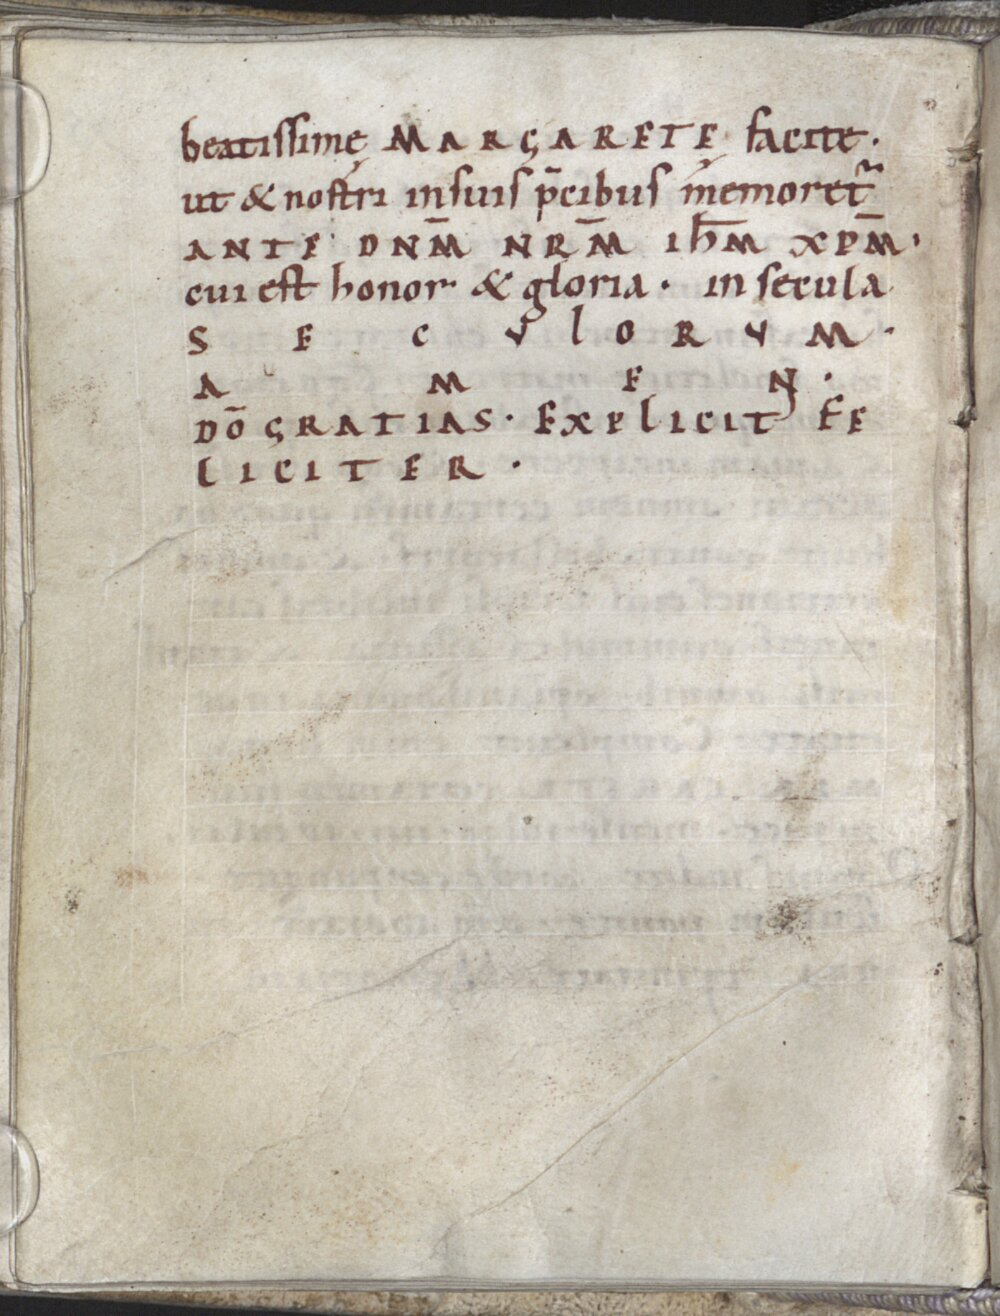 beatissimę MARGARETE facite·
ut & nostri insuis p̄cibus memoret᷑
ANTE DNM̄ NRM̄ IHM̄ XPM̄·
cui est honor & gloria· in secula
SECVLORVM·
AMEN·
DŌ GRATIAS· EXPLICIT FE
LICITER·